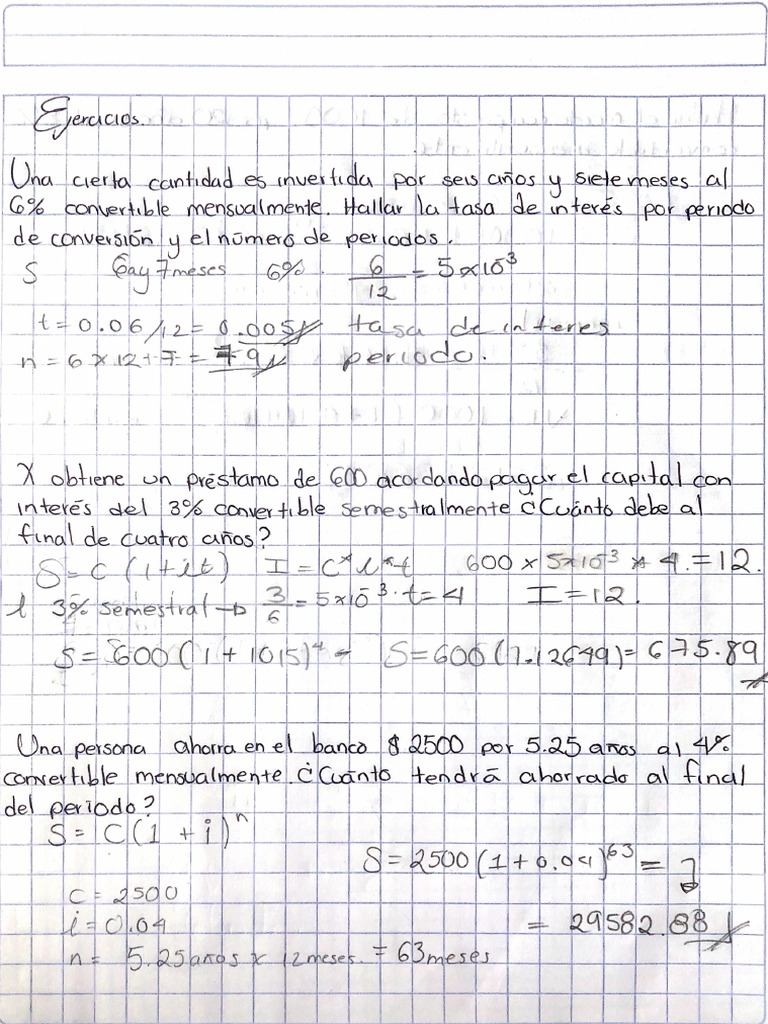 Ejercicios.
Una cierta cantidad es invertida por seis años y siete meses al
6% convertible mensualmente. Hallar la tasa de interés por periodo
de conversión y el número de periodos.
S 6a y 7meses 6%. 6/12 = 5x10^3
t = 0.06/12 = 0.005 tasa de interes
n = 6 x 12 + 7 = 79 periodo.
X obtiene un préstamo de 600 acordando pagar el capital con
interés del 3% convertible semestralmente ¿Cuánto debe al
final de cuatro años?
S = C (1+it) I = C*i*t 600 x 5x10^3 * 4. = 12.
i 3% semestral → 3/6 = 5x10^3 · t = 4 I = 12.
S = 600 (1 + 1015)^4 = S = 600 (1.12649) = 675.89
Una persona ahorra en el banco $2500 por 5.25 años al 4%
convertible mensualmente. ¿Cuánto tendrá ahorrado al final
del periodo?
S = C (1 + i)^n
S = 2500 (1 + 0.04)^63 =
C = 2500
i = 0.04
= 29582.88
n = 5.25 años x 12 meses. = 63 meses